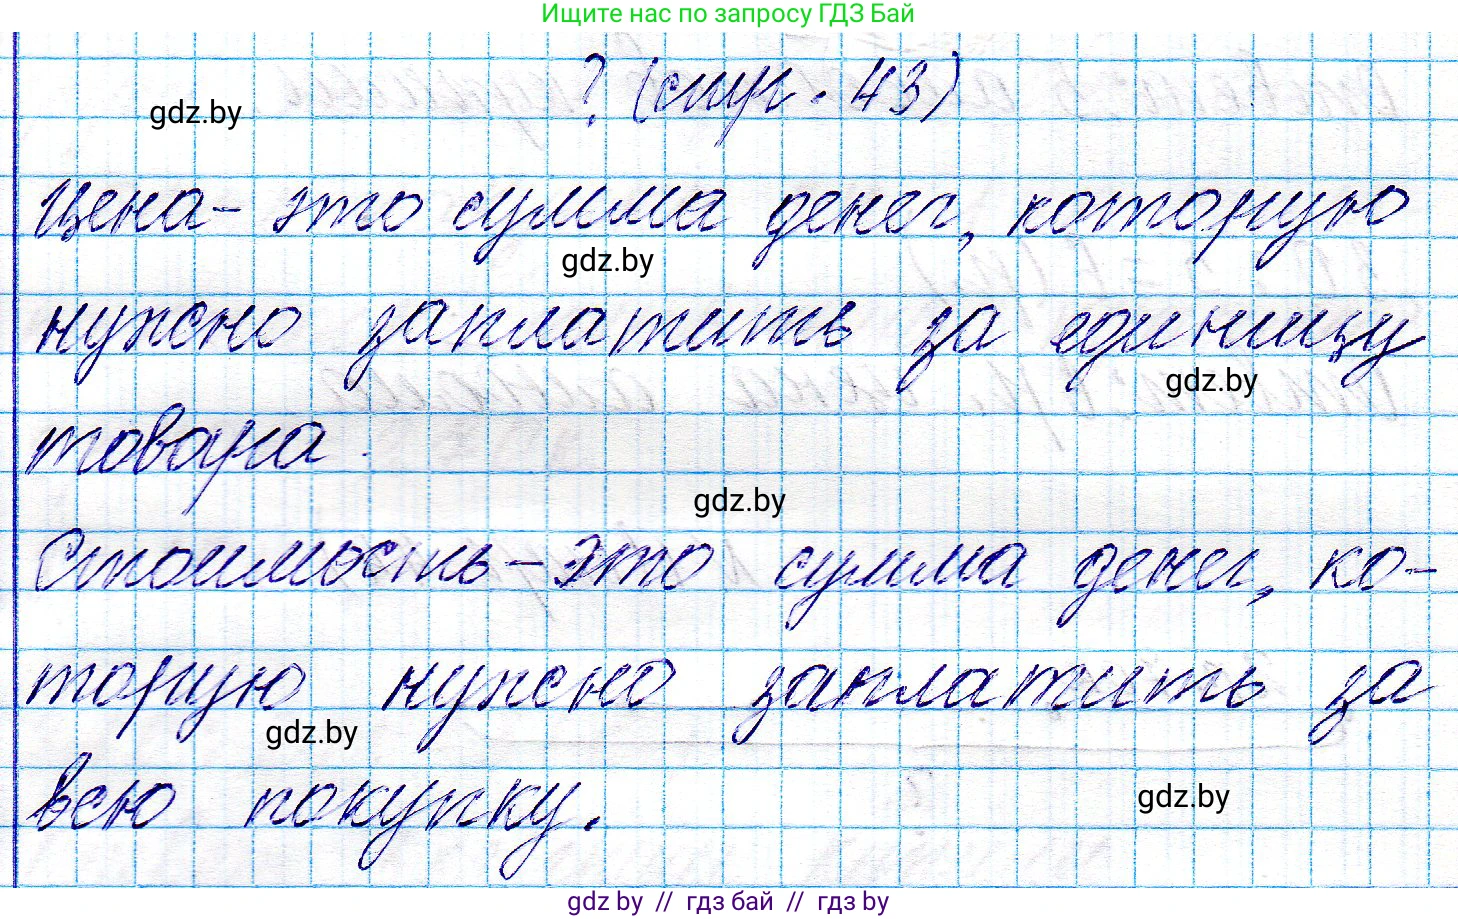 Ищите нас по запросу ГДЗ Бай
? (стр. 43)
gdz.by
Цена - это сумма денег, которую
gdz.by
нужно заплатить за единицу
gdz.by
товара.
gdz.by
Стоимость - это сумма денег, ко-
торую нужно заплатить за
gdz.by
всю покупку.
gdz.by
gdz.by // гдз бай // гдз by